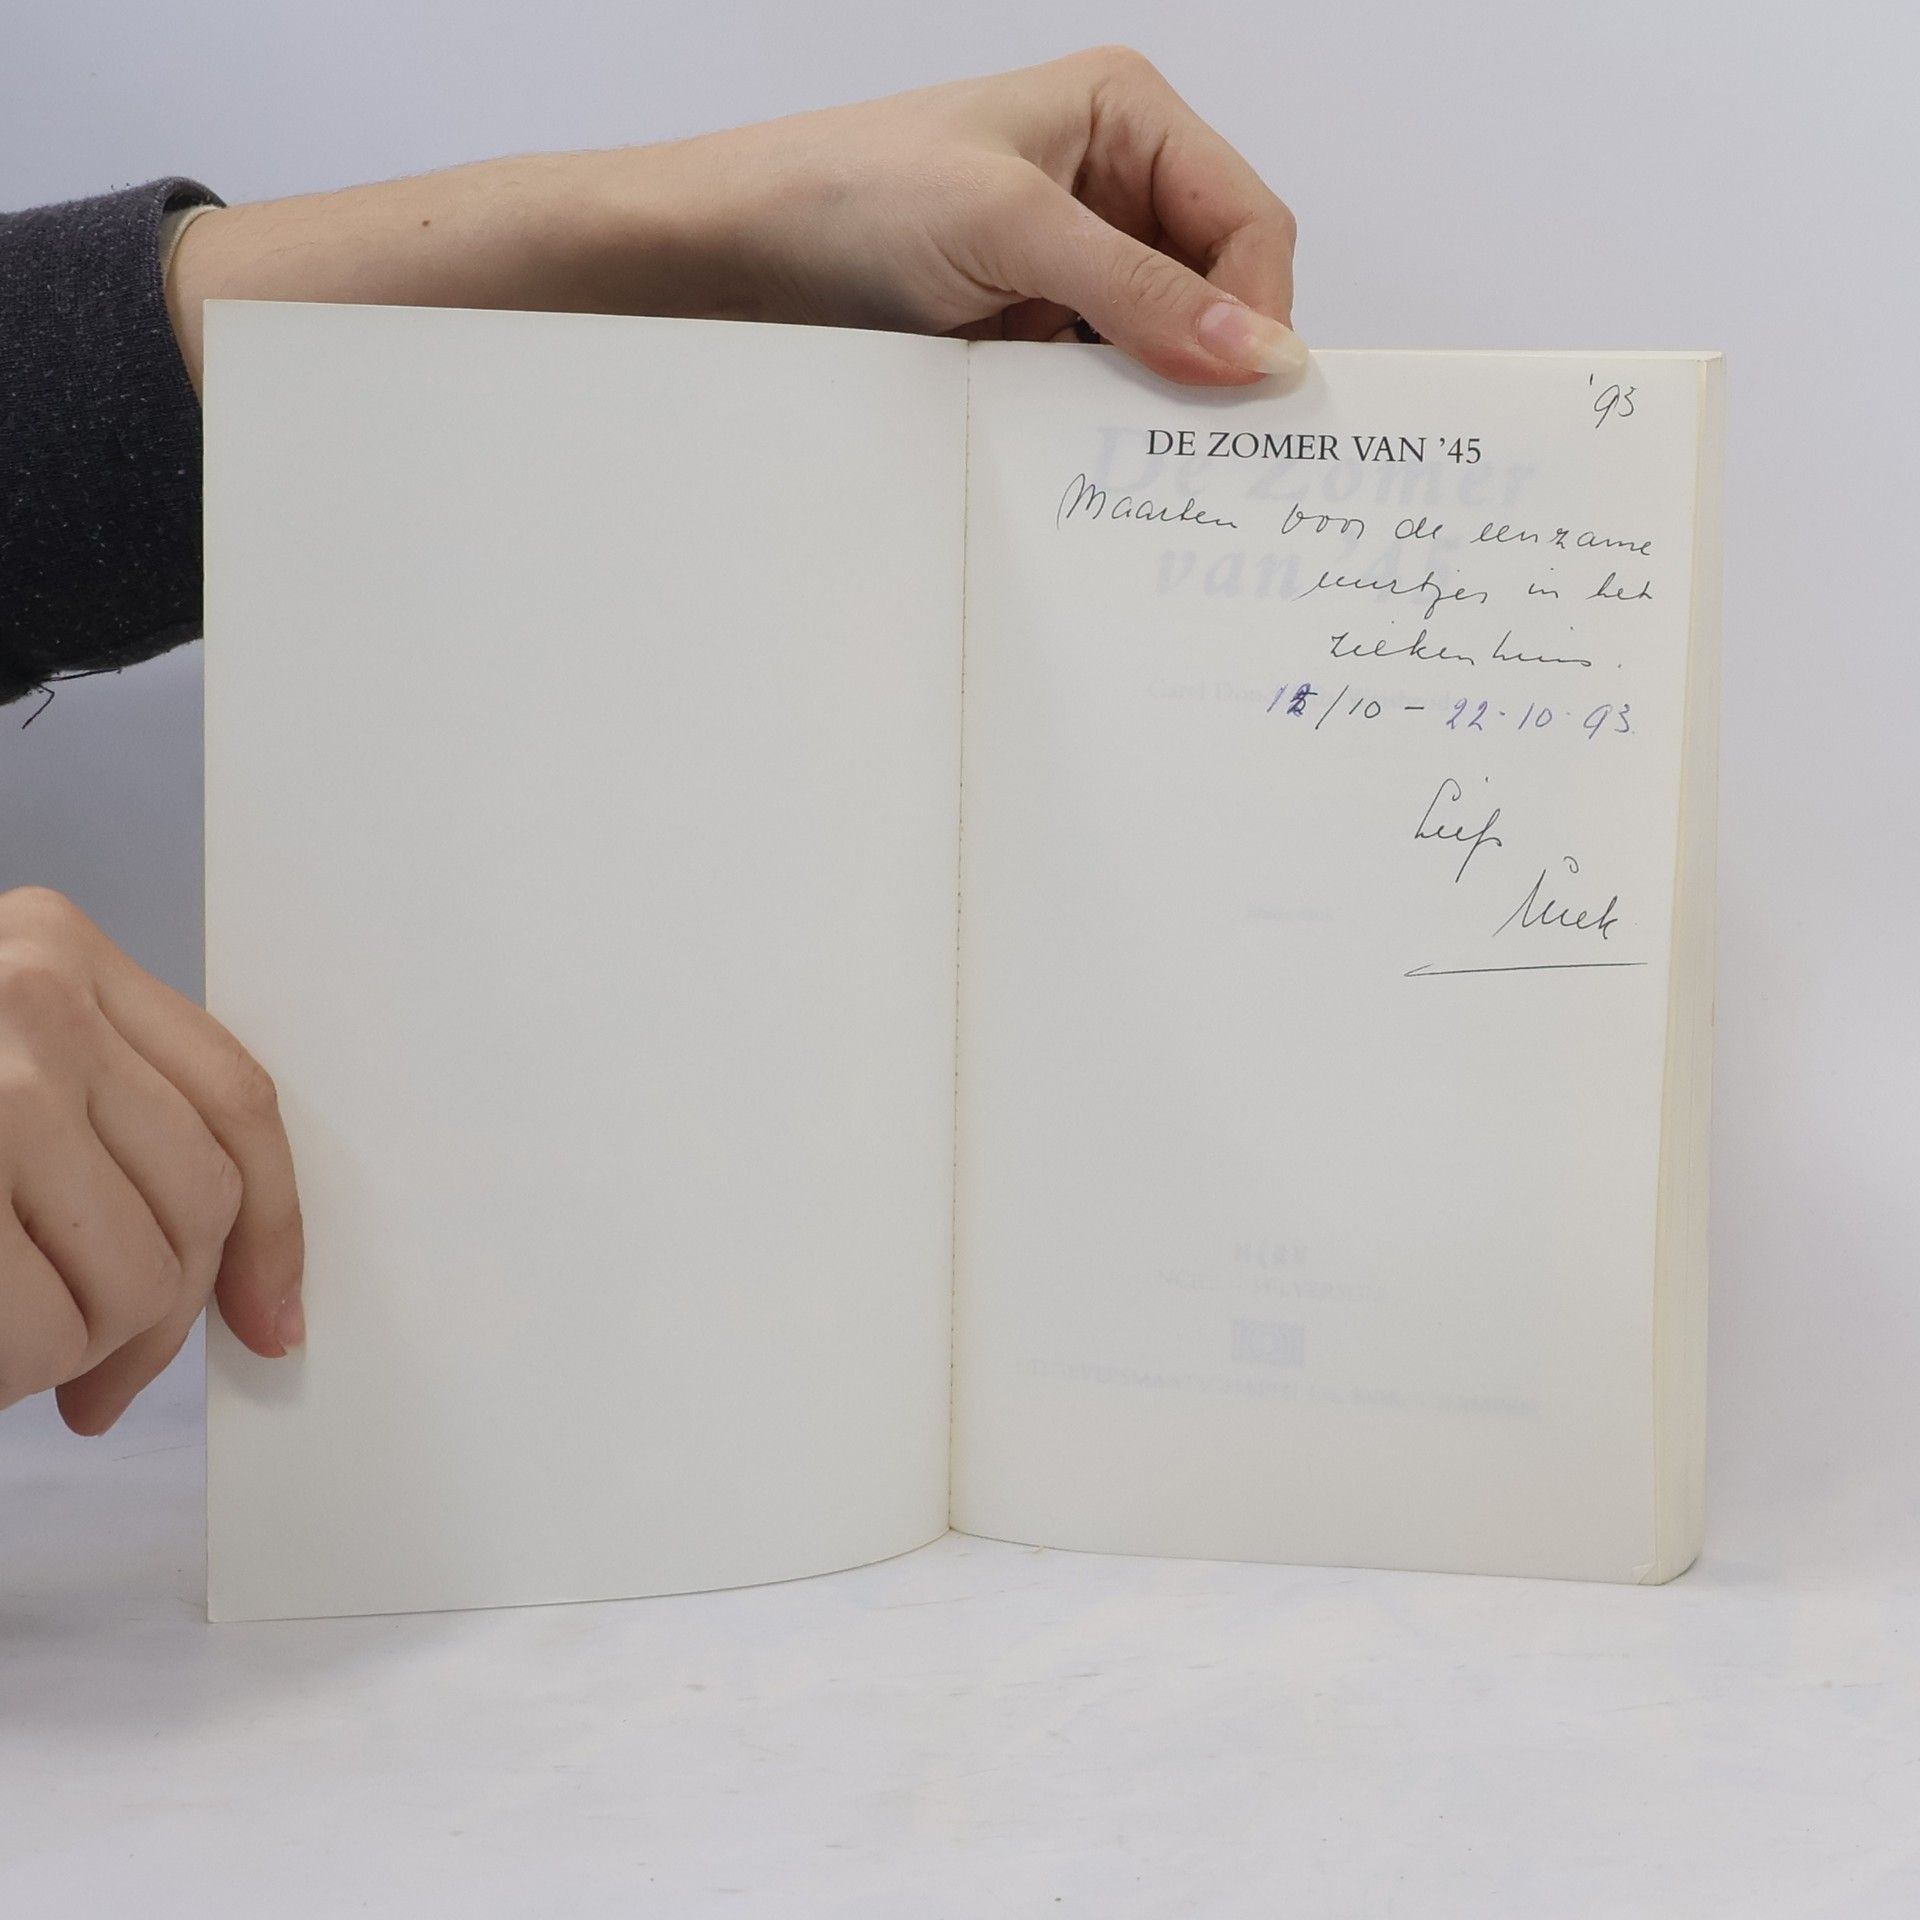 '93
DE ZOMER VAN '45
Maarten voor de eenzame
uurtjes in het
ziekenhuis.
/10 - 22-10-93.
Liefs
De Zomer
van '45